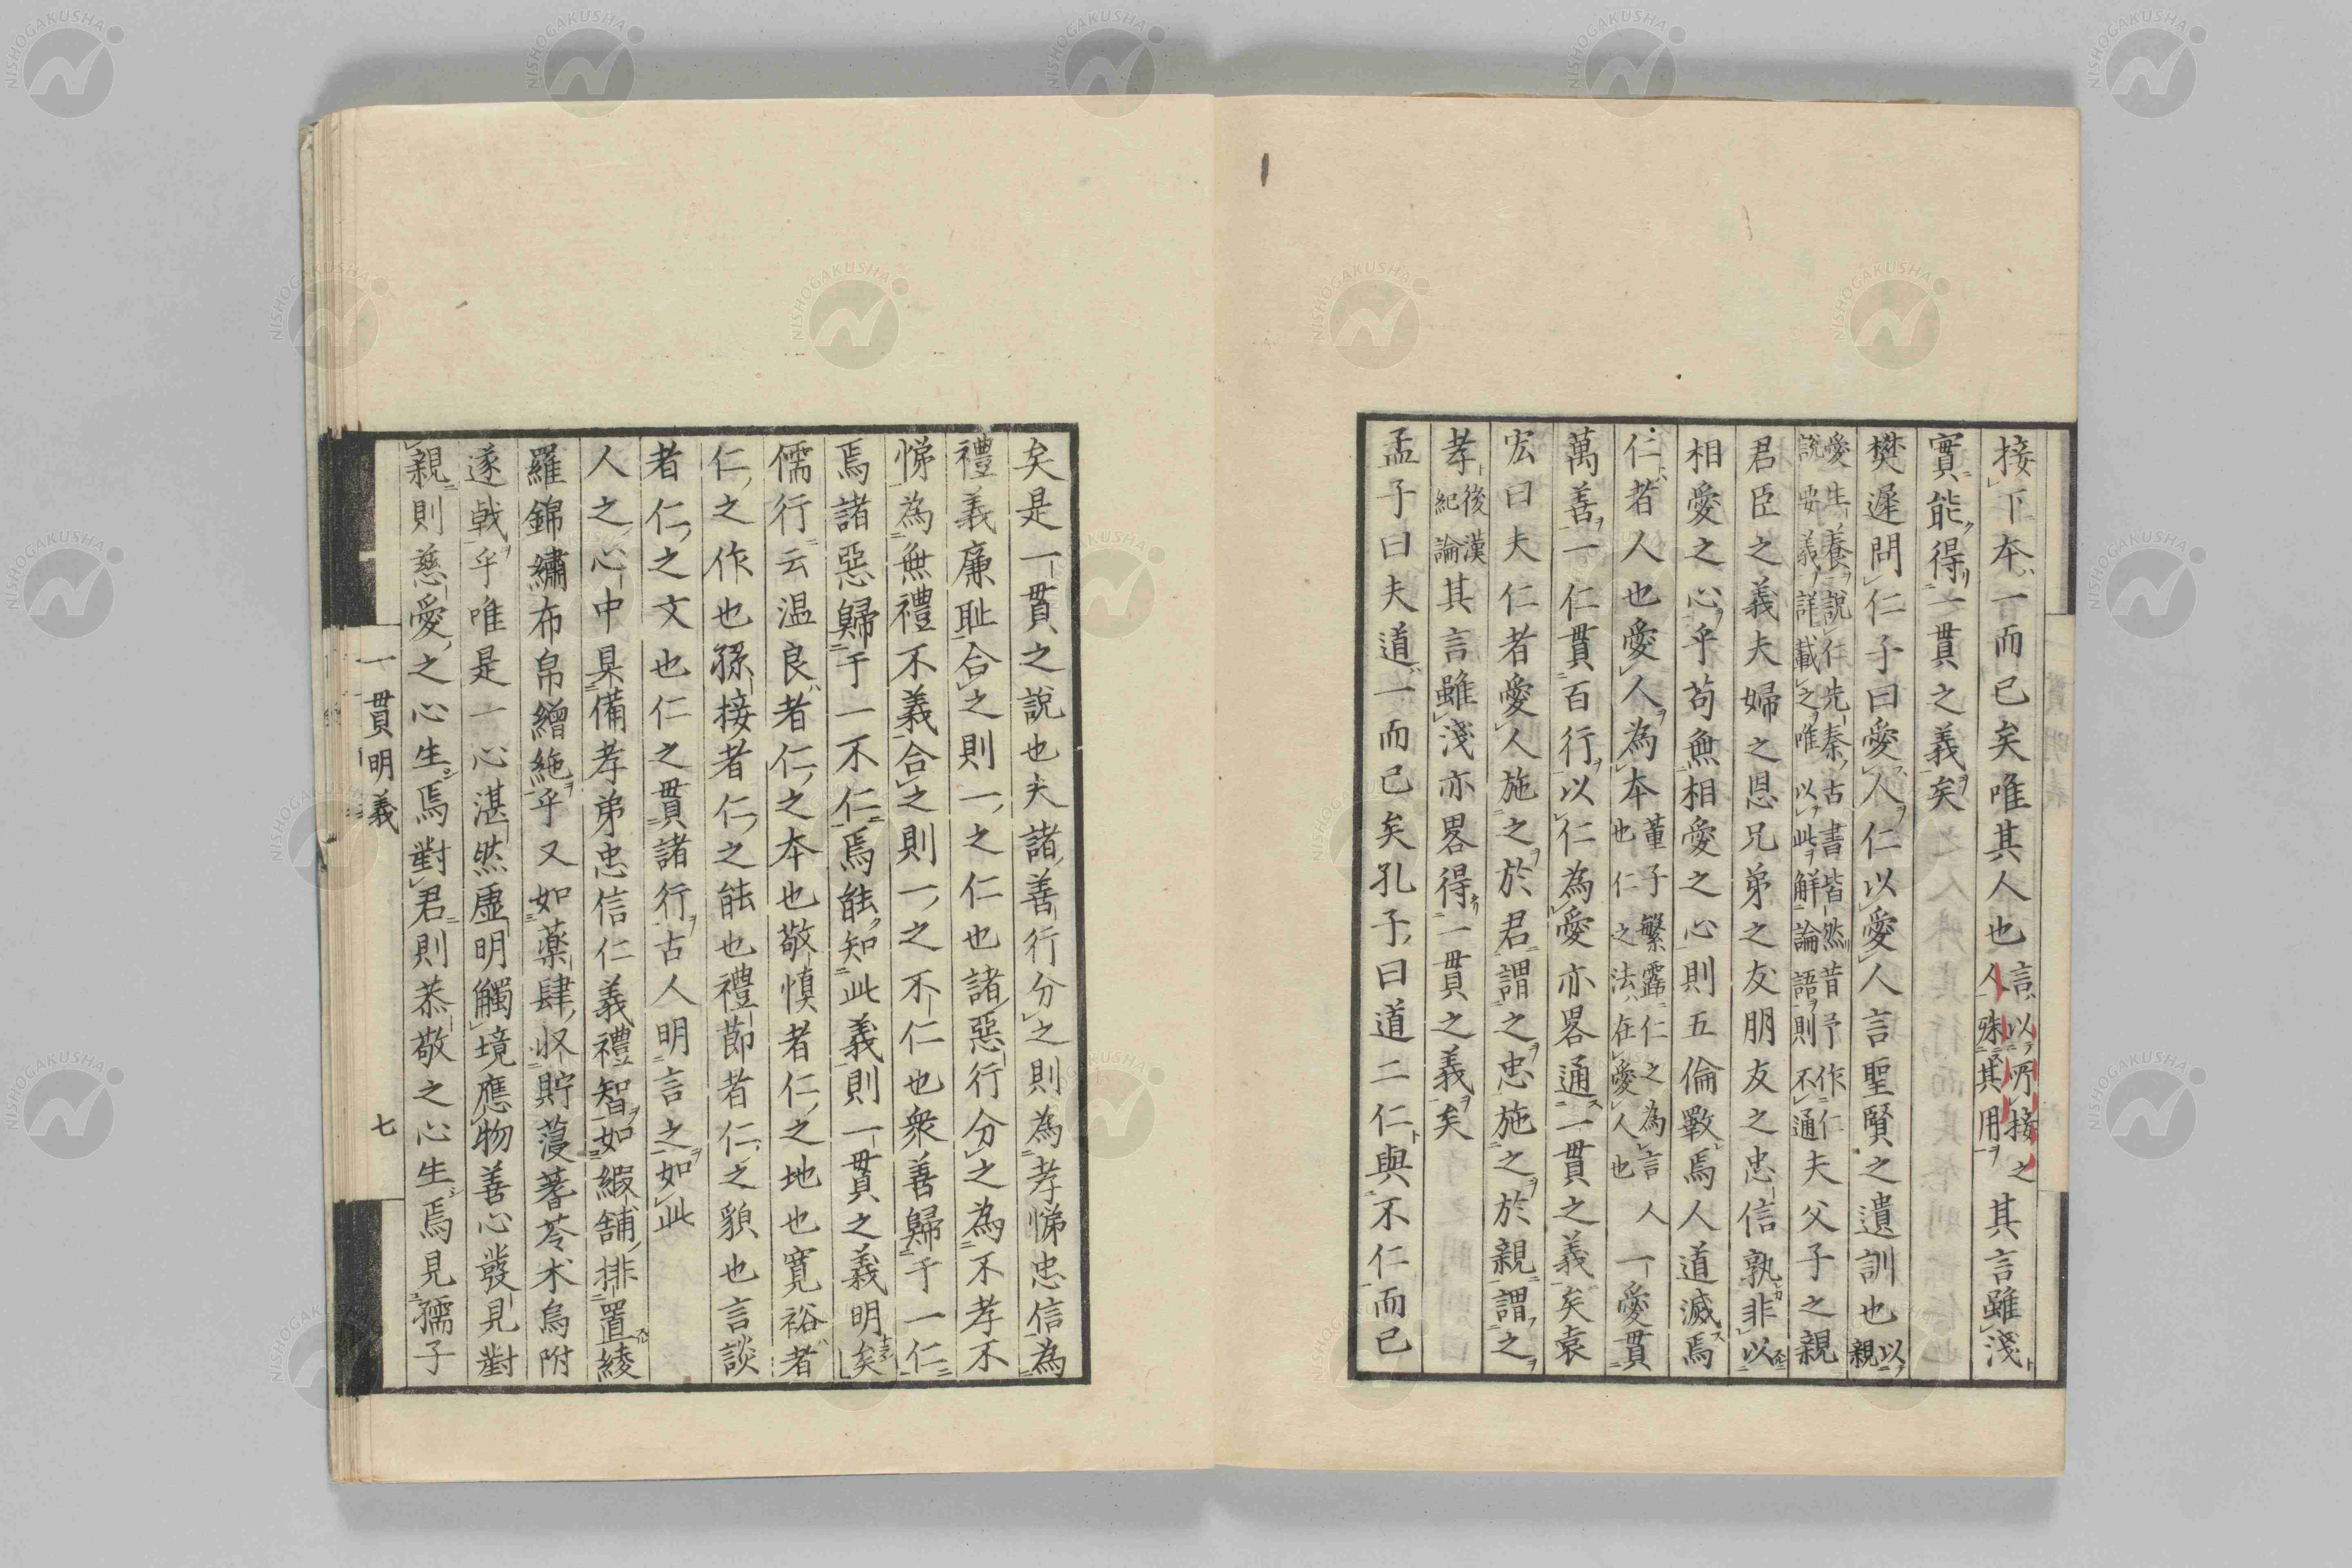 接下本一而已矣唯其人也言以所接之人殊其用其言雖淺
實能得一貫之義矣
樊遲問仁子曰愛人仁以愛人言聖賢之遺訓也以親
愛生養說仁先秦古書皆然昔予作仁說要義詳載之唯以此解論語則不通夫父子之親
君臣之義夫婦之恩兄弟之友朋友之忠信孰非以
相愛之心乎苟無相愛之心則五倫斁焉人道滅焉
仁者人也愛人為本董子繁露仁之為言人也仁之法在愛人也一愛貫
萬善一仁貫百行以仁為愛亦畧通一貫之義矣袁
宏曰夫仁者愛人施之於君謂之忠施之於親謂之
孝後漢紀論其言雖淺亦畧得一貫之義矣
孟子曰夫道一而已矣孔子曰道二仁與不仁而已
矣是一貫之說也夫諸善行分之則為孝悌忠信為
禮義廉耻合之則一之仁也諸惡行分之為不孝不
悌為無禮不義合之則一之不仁也衆善歸于一仁
焉諸惡歸于一不仁焉能知此義則一貫之義明矣
儒行云温良者仁之本也敬慎者仁之地也寬裕者
仁之作也孫接者仁之能也禮節者仁之貌也言談
者仁之文也仁之貫諸行古人明言之如此
人之心中具備孝弟忠信仁義禮智如緞舖排置綾
羅錦繡布帛繒絁乎又如藥肆收貯蓡蓍苓朮烏附
遂戟乎唯是一心湛然虛明觸境應物善心發見對
親則慈愛之心生焉對君則恭敬之心生焉見孺子
一貫明義
七
NISHOGAKUSHA